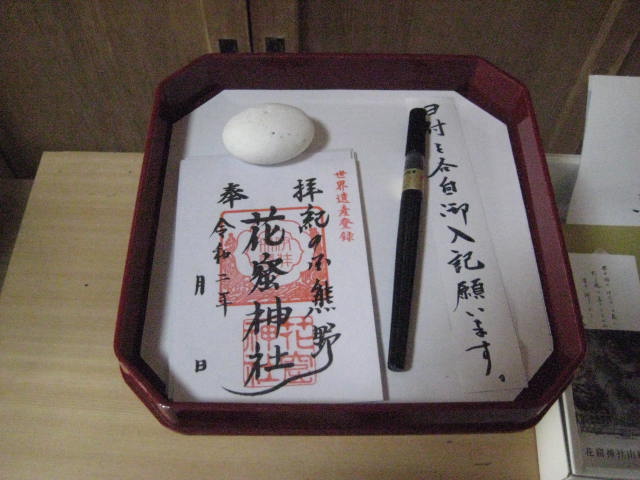 日付を各自御入記願います。
世界遺産登録
拝 紀の国熊野
花窟神社
奉 令和二年
月 日
花窟神社
花窟神社